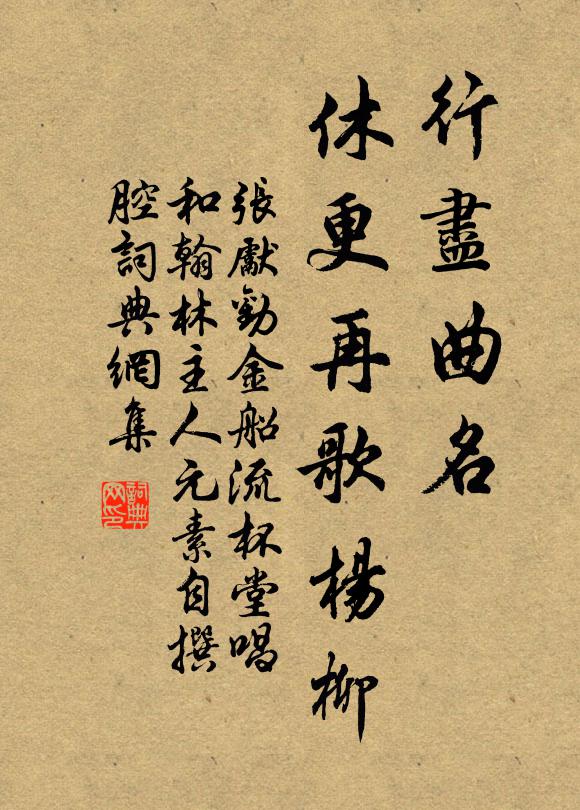 行盡曲名
休更再歌楊柳
張獻勸金船流杯堂唱
和翰林主人元素自撰
腔詞典網集
詞典
网印